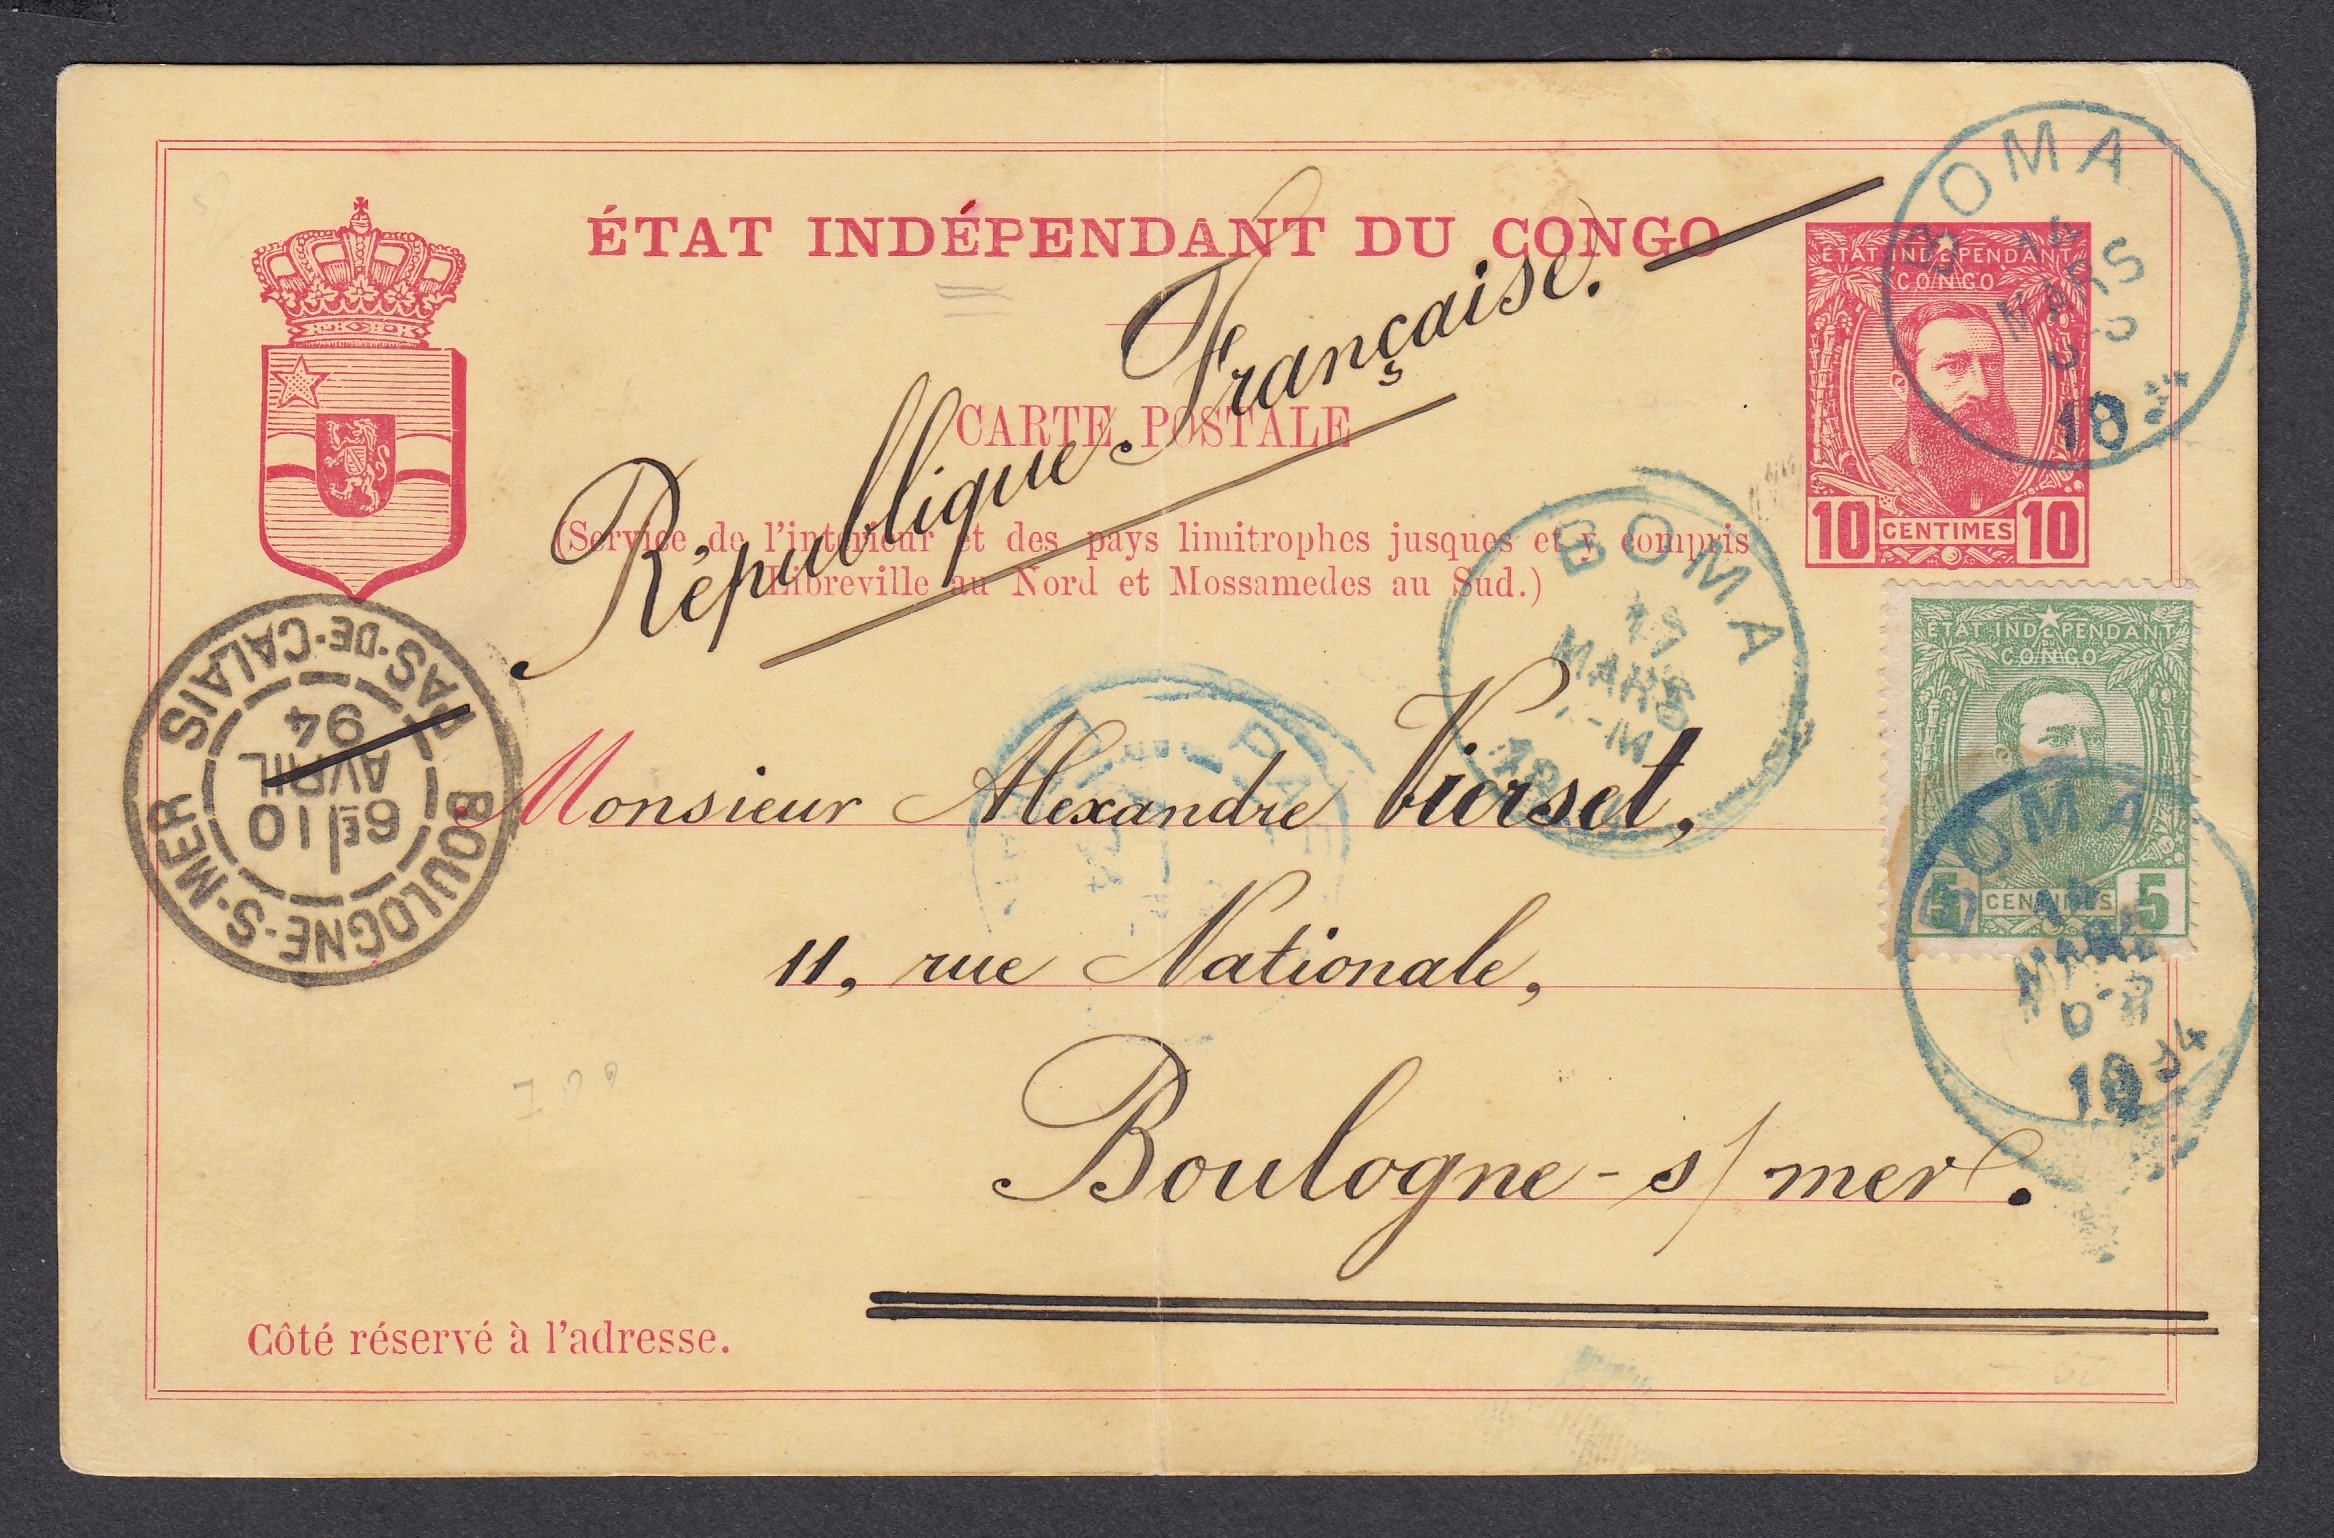 ÉTAT INDÉPENDANT DU CONGO
CARTE POSTALE
(Service de l'intérieur et des pays limitrophes jusques et y compris
Libreville au Nord et Mossamedes au Sud.)
République Française.
ÉTAT INDÉPENDANT
DU
CONGO
10 CENTIMES 10
BOMA
14
MARS
18
ÉTAT INDÉPENDANT
DU
CONGO
5 CENTIMES 5
BOMA
14
MARS
BOMA
MARS
BOULOGNE-S-MER PAS-DE-CALAIS
6E/10
AVRIL
94
Monsieur Alexandre Vierset,
11, rue Nationale,
Boulogne-s/mer.
Côté réservé à l'adresse.